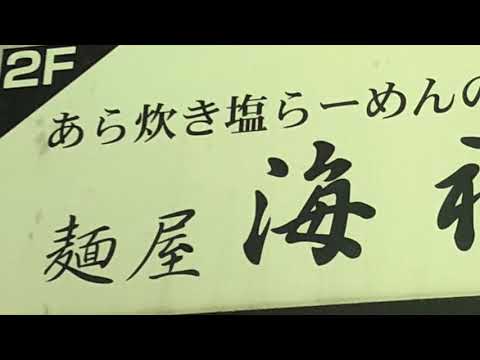 2F
あら炊き塩らーめんの
麺屋 海